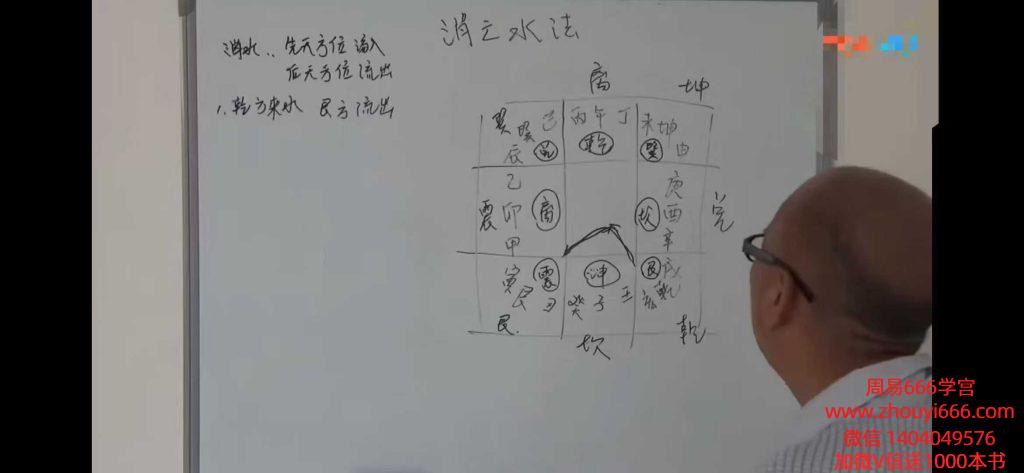 消亡水法
消水：先天方位 流入
后天方位 流出
1. 乾方来水 艮方流出
离
坤
巽 巽 巳
辰 兑
丙 午 丁
乾
未 坤 申
巽
乙
震 卯 离
甲
庚
坎 酉 兑
辛
寅 震
艮 丑
艮
坤
癸 子 壬
坎
艮 戌
亥 乾
乾
周易666学宫
www.zhouyi666.com
微信 1404049576
加微V信送1000本书